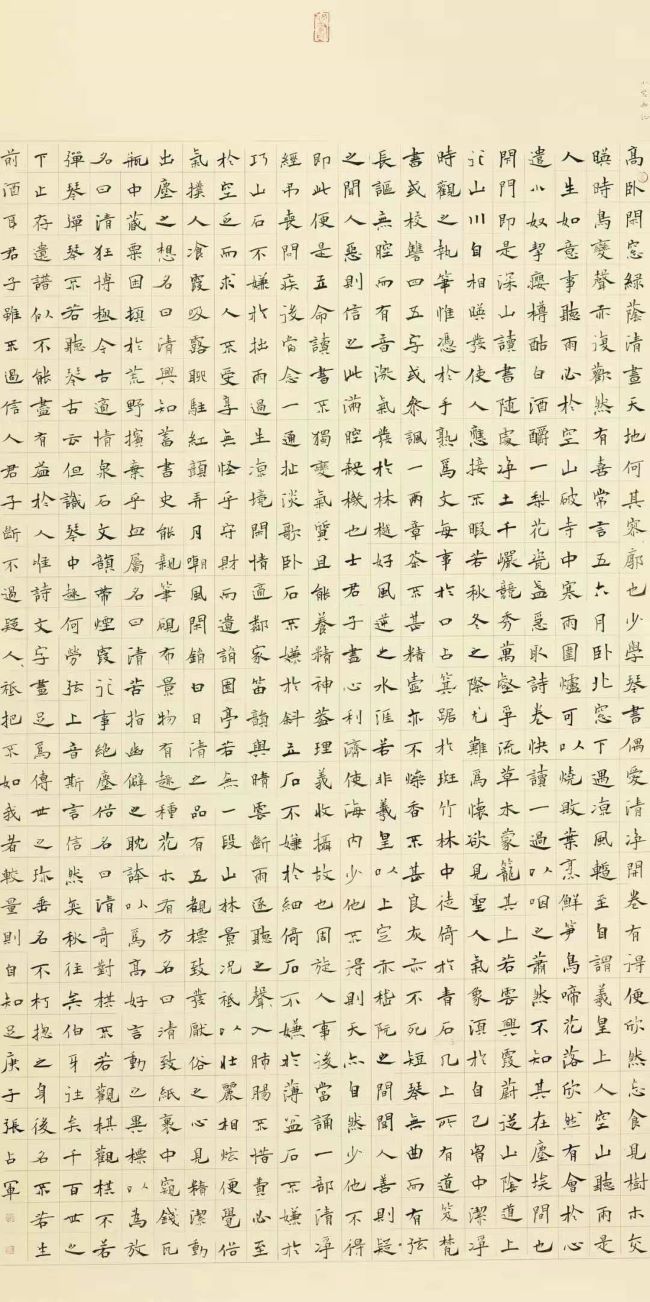 高臥閑窓綠蔭清晝天地何其寥廓也少學琴書偶愛清淨開卷有得便欣然忘食見樹木交
暎時鳥變聲亦復歡然有喜常言五六月臥北窓下遇凉風蹔至自謂羲皇上人空山聽雨是
人生如意事聽雨必於空山破寺中寒雨圍爐可以燒敗葉烹鮮笋鳥啼花落欣然有會於心
遣小奴挈癭樽酤白酒釂一梨花瓷盞急取詩卷快讀一過以咽之蕭然不知其在塵埃間也
閉門即是深山讀書隨處淨土千巖競秀萬壑爭流草木蒙籠其上若雲興霞蔚從山陰道上
行山川自相暎發使人應接不暇若秋冬之際尤難爲懷欲見聖人氣象須於自己胷中潔淨
時觀之執筆惟憑於手熟爲文每事於口占箕踞於斑竹林中徒倚於青石几上所有道笈梵
書或校讐四五字或參諷一兩章茶不甚精壺亦不燥香不甚良灰亦不死短琴無曲而有弦
長謳無腔而有音激氣發於林樾好風逆之水涯若非羲皇以上定亦嵇阮之間聞人善則疑
之聞人惡則信之此滿腔殺機也士君子盡心利濟使海內少他不得則天亦自然少他不得
即此便是立命讀書不獨變氣質且能養精神蓋理義收攝故也周旋人事後當誦一部清淨
經弔喪問疾後當念一通扯淡歌臥石不嫌於斜立石不嫌於細倚石不嫌於薄盆石不嫌於
巧山石不嫌於拙雨過生凉境閑情適鄰家笛韻與晴雲斷雨逐聽之聲入肺腸不惜費必至
於空乏而求人不受享無怪乎守財而遺誚園亭若無一段山林景況祗以壯麗相炫便覺俗
氣撲人飡霞吸露聊駐紅顏弄月嘲風閑銷白日清之品有五觀標致發厭俗之心見精潔動
出塵之想名曰清興知蓄書史能親筆硯布景物有趣種花木有方名曰清致紙裹中窺錢瓦
瓶中藏粟困頓於荒野擯棄乎血屬名曰清苦指幽僻之耽誇以爲高好言動之異標以為放
名曰清狂博極今古適情泉石文韻帶煙霞行事絕塵俗名曰清奇對棋不若觀棋觀棋不若
彈琴彈琴不若聽琴古云但識琴中趣何勞弦上音斯言信然矣秋往矣伯牙往矣千百世之
下止存遺譜似不能盡有益於人惟詩文字畫足爲傳世之珍垂名不朽揔之身後名不若生
前酒耳君子雖不過信人君子斷不過疑人祗把不如我者較量則自知足庚子張占軍